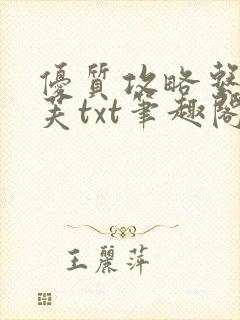 優質攻略整
芙txt筆趣閣
王麗萍